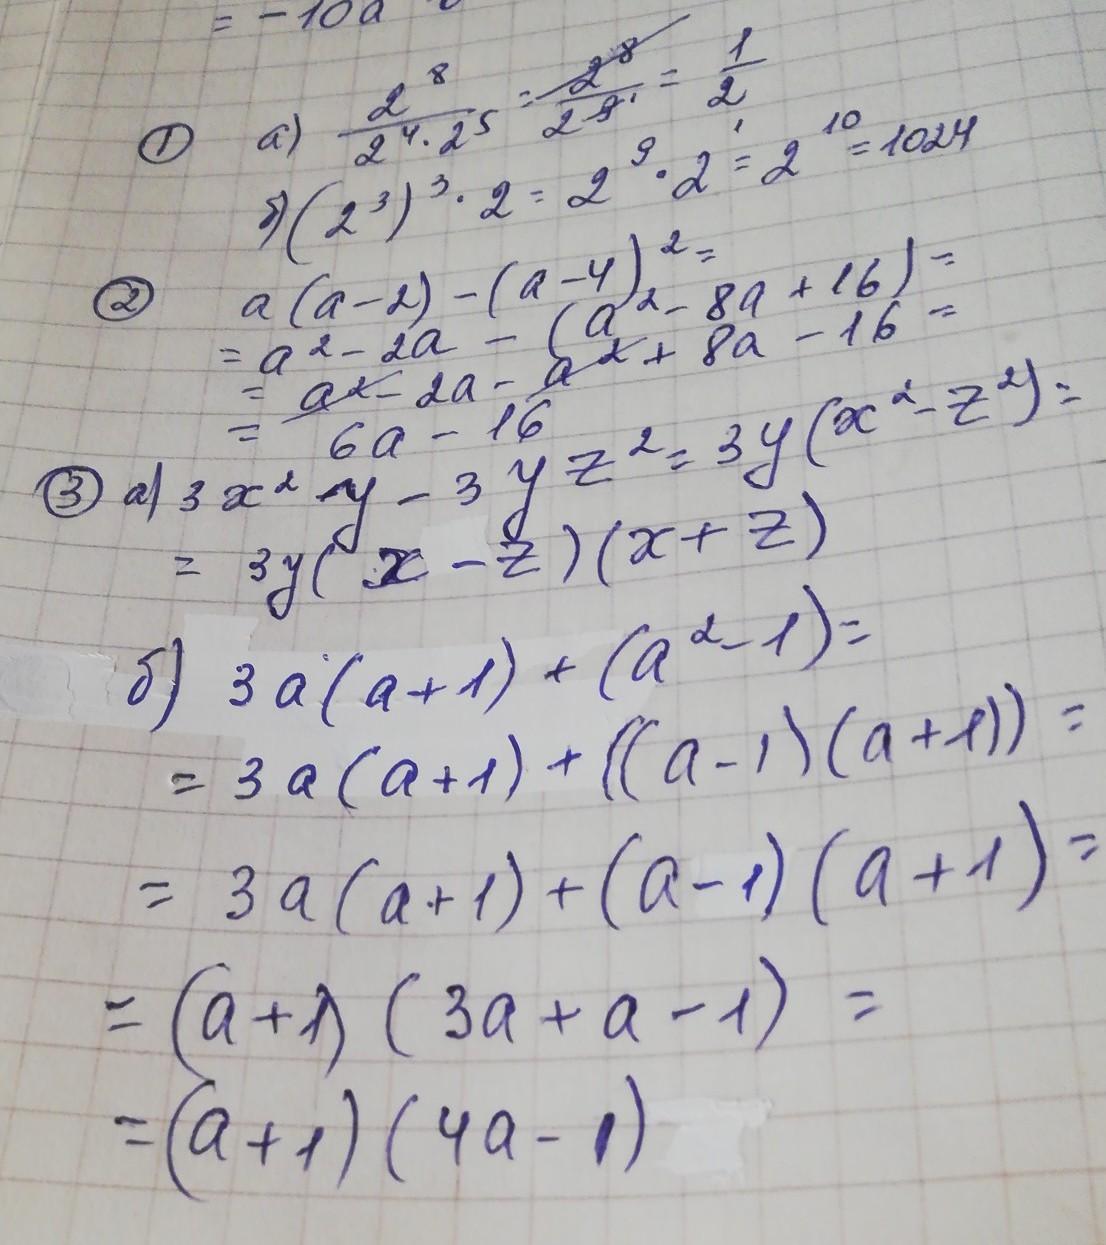 = -10a
① а) 2^8 / (2^4 · 2^5) = 2^8 / 2^9 = 1/2
б) (2^3)^3 · 2 = 2^9 · 2^1 = 2^10 = 1024
② a(a-2) - (a-4)^2 =
= a^2 - 2a - (a^2 - 8a + 16) =
= a^2 - 2a - a^2 + 8a - 16 =
= 6a - 16
③ а) 3x^2y - 3yz^2 = 3y(x^2 - z^2) =
= 3y(x - z)(x + z)
б) 3a(a+1) + (a^2 - 1) =
= 3a(a+1) + ((a-1)(a+1)) =
= 3a(a+1) + (a-1)(a+1) =
= (a+1)(3a + a - 1) =
= (a+1)(4a - 1)